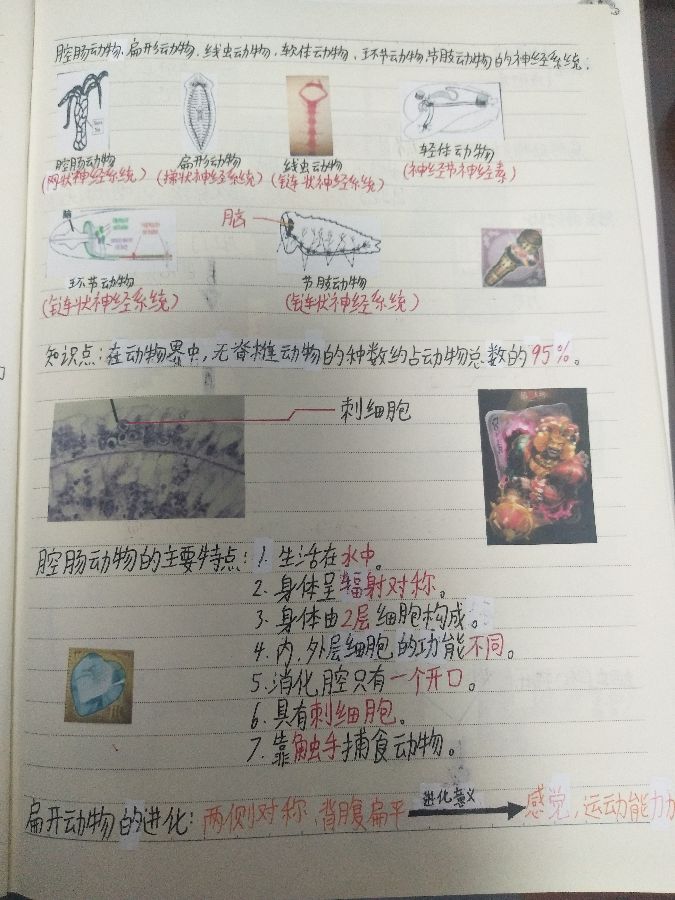 腔肠动物、扁形动物、线虫动物、软体动物、环节动物、节肢动物的神经系统:
腔肠动物 扁形动物 线虫动物 轻体动物
(网状神经系统) (梯状神经系统) (链连状神经系统) (神经节神经素)
脑 脑
环节动物 节肢动物
(链连状神经系统) (链连状神经系统)
知识点:在动物界中,无脊椎动物的种数约占动物总数的95%。
刺细胞
腔肠动物的主要特点:1. 生活在水中。
2. 身体呈辐射对称。
3. 身体由2层细胞构成。
4. 内、外层细胞的功能不同。
5. 消化腔只有一个开口。
6. 具有刺细胞。
7. 靠触手捕食动物。
扁开动物的进化:两侧对称、背腹扁平 进化意义 感觉,运动能力